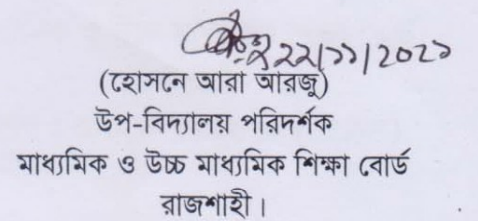 ২২/১১/২০২১
(হোসনে আরা আরজু)
উপ-বিদ্যালয় পরিদর্শক
মাধ্যমিক ও উচ্চ মাধ্যমিক শিক্ষা বোর্ড
রাজশাহী।